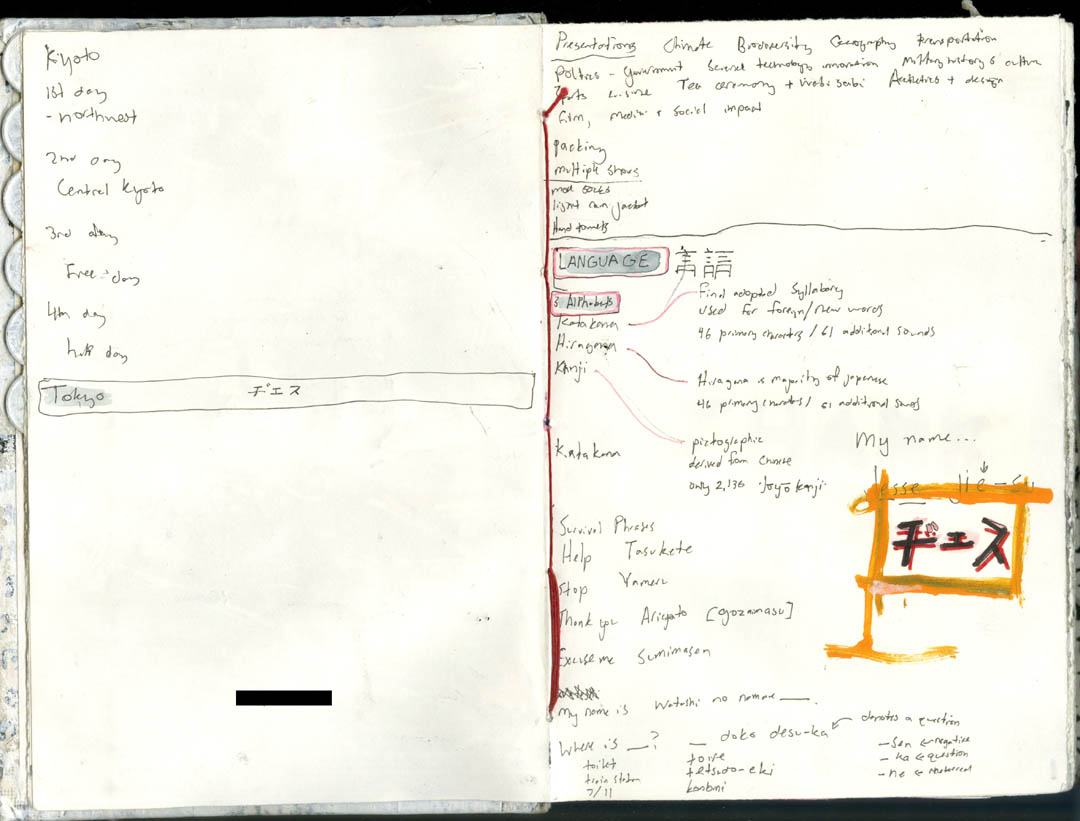 Kyoto
1st day
- northwest
2nd day
Central Kyoto
3rd day
Free day
4th day
day
Tokyo ヂエス
Presentations Climate Biodiversity Geography transportation
Politics - Government technology innovation Military history & culture
Sports cuisine Tea ceremony + wabi sabi Aesthetics + design
Film, media + social impact
packing
multiple
light rain jacket
Hand
LANGUAGE
3 Alphabets
Katakana
Final adopted Syllabary
used for foreign/new words
46 primary / 61 additional sounds
Hiragana
Hiragana is majority of Japanese
46 primary / 61 additional
Kanji
pictographic
derived from Chinese
only 2,136 Joyo Kanji
Katakana
My name...
Jesse
ヂエス
Survival Phrases
Help Tasukete
Stop Yameru
Thank you [gozaimasu]
Excuse me Sumimasen
My name is Watashi no namae ___.
Where is ___? ___ doko desu-ka ← denotes a question
toilet
train station tetsudo-eki
7/11 konbini
- Sen ← negative
- ka ← question
- ne ←